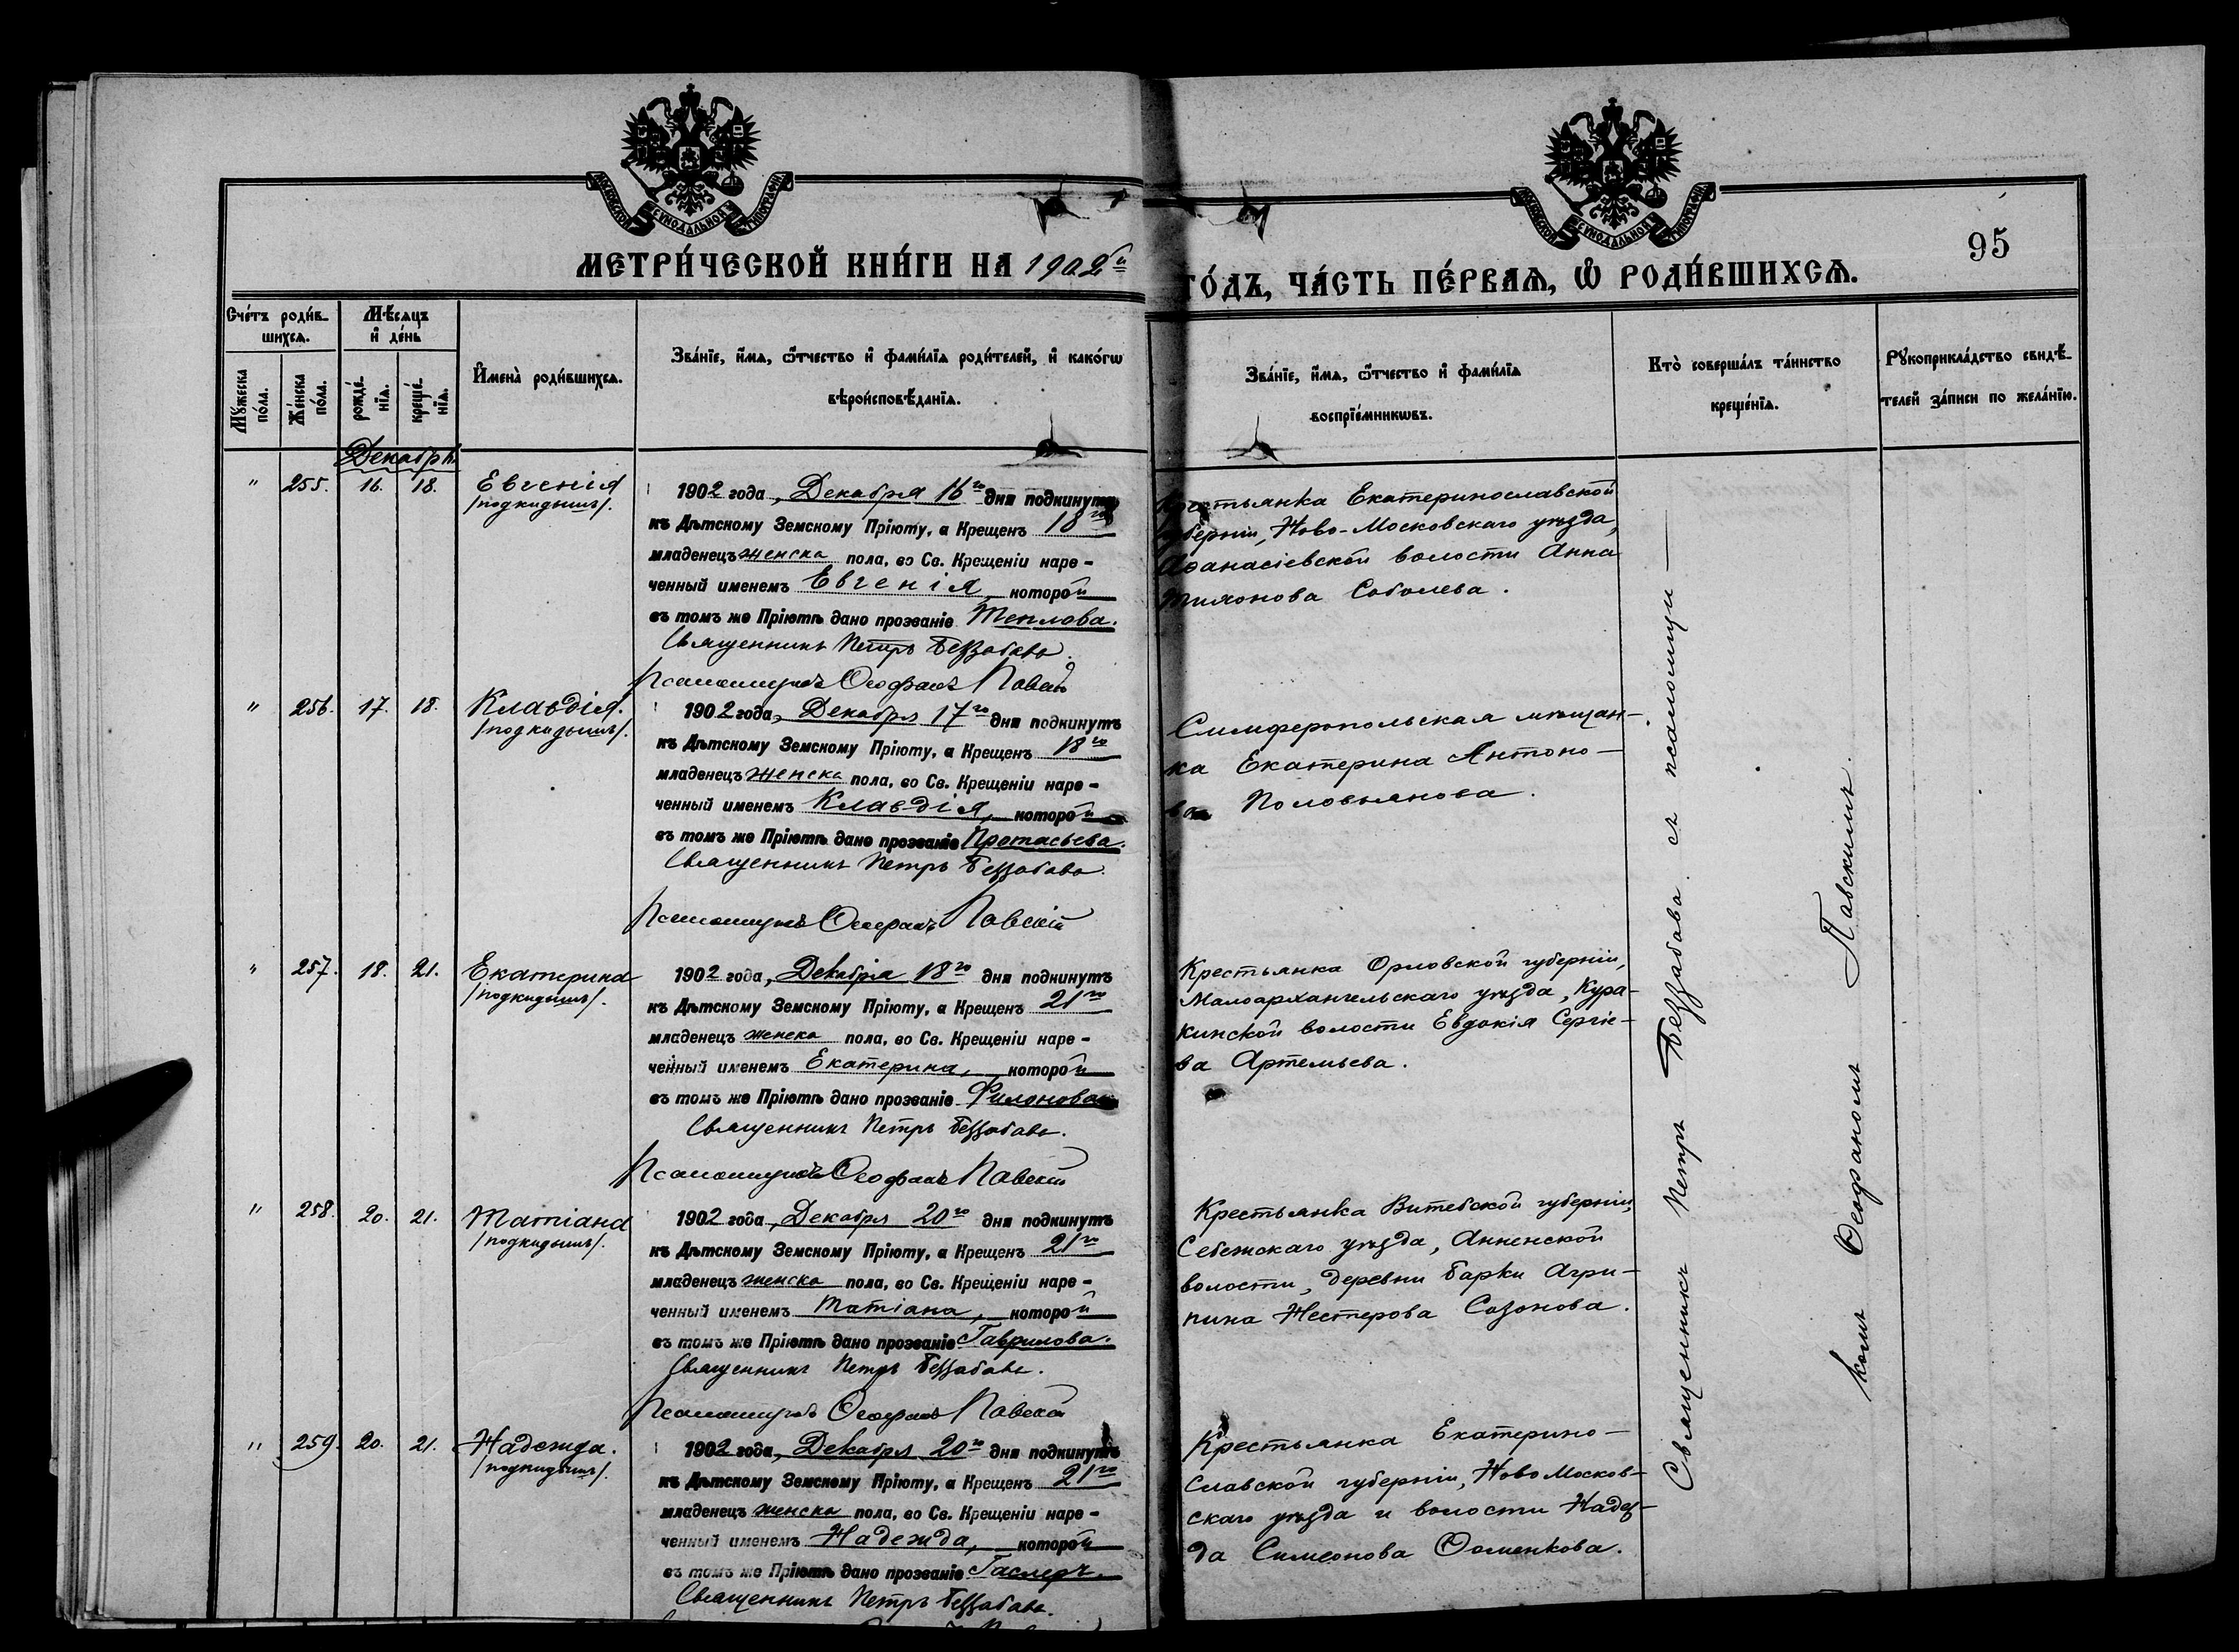 МОСКОВСКОЙ СѴНОДАЛЬНОЙ ТИПОГРАФІИ
МОСКОВСКОЙ СѴНОДАЛЬНОЙ ТИПОГРАФІИ
95
МЕТРИ́ЧЕСКОЙ КНИ́ГИ НА 1902й
ГО́ДЪ, ЧА́СТЬ ПЕ́РВАѦ, Ѽ РОДИ́ВШИХСѦ.
Сче́тъ роди́в-
шихсѧ.
Мꙋжеска
по́ла.
Же́нска
по́ла.
Мѣ́сѧцъ
и҆ де́нь
рожде́-
нїѧ.
креще́-
нїѧ.
И҆мена̀ роди́вшихсѧ.
Зва́нїе, и҆́мѧ, ѻ҆́тчество и҆ фами́лїѧ роди́телей, и҆ како́гѡ
вѣроисповѣ́данїѧ.
Зва́нїе, и҆́мѧ, ѻ҆́тчество и҆ фами́лїѧ
воспрїе́мникѡвъ.
Кто̀ соверша́лъ та́инство
креще́нїѧ.
Рꙋкоприкла́дство свидѣ́-
телей за́писи по жела́нїю.
Декабрь
" 255. 16. 18. Евгенія
/подкидышъ/.
1902 года, Декабря 16го дня подкинутъ
къ Дѣтскому Земскому Пріюту, а Крещенъ 18го
младенецъ женска пола, во Св. Крещеніи наре-
ченный именемъ Евгенія, которой
въ томъ же Пріютѣ дано прозваніе Теплова.
Священникъ Петръ Беззабава.
Псаломщикъ Ѳеофанъ Павскій
Крестьянка Екатеринославской
губерніи, Ново-Московскаго уѣзда,
Аѳанасіевской волости Анна
Тихонова Соболева.
" 256. 17. 18. Клавдія.
/подкидышъ/.
1902 года, Декабря 17го дня подкинутъ
къ Дѣтскому Земскому Пріюту, а Крещенъ 18го
младенецъ женска пола, во Св. Крещеніи наре-
ченный именемъ Клавдія, которой
въ томъ же Пріютѣ дано прозваніе Протасьева.
Священникъ Петръ Беззабава.
Псаломщикъ Ѳеофанъ Павскій
Симферопольская мѣщан-
ка Екатерина Антоно-
ва Половьянова.
" 257. 18. 21. Екатерина
/подкидышъ/.
1902 года, Декабря 18го дня подкинутъ
къ Дѣтскому Земскому Пріюту, а Крещенъ 21го
младенецъ женска пола, во Св. Крещеніи наре-
ченный именемъ Екатерина, которой
въ томъ же Пріютѣ дано прозваніе Филонова
Священникъ Петръ Беззабава.
Псаломщикъ Ѳеофанъ Павскій
Крестьянка Орловской губерніи,
Малоархангельскаго уѣзда, Кура-
кинской волости Евдокія Сергіе-
ва Артемьева.
" 258. 20. 21. Татіана
/подкидышъ/.
1902 года, Декабря 20го дня подкинутъ
къ Дѣтскому Земскому Пріюту, а Крещенъ 21го
младенецъ женска пола, во Св. Крещеніи наре-
ченный именемъ Татіана, которой
въ томъ же Пріютѣ дано прозваніе Гаврилова.
Священникъ Петръ Беззабава.
Псаломщикъ Ѳеофанъ Павскій
Крестьянка Витебской губерніи,
Себежскаго уѣзда, Анненской
волости, деревни Барки Агри-
пина Нестерова Созонова.
" 259. 20. 21. Надежда.
/подкидышъ/.
1902 года, Декабря 20го дня подкинутъ
къ Дѣтскому Земскому Пріюту, а Крещенъ 21го
младенецъ женска пола, во Св. Крещеніи наре-
ченный именемъ Надежда, которой
въ томъ же Пріютѣ дано прозваніе Гаслеръ.
Священникъ Петръ Беззабава.
Крестьянка Екатерино-
славской губерніи, Ново Москов-
скаго уѣзда и волости Надеж-
да Симеонова Ѳоменкова.
Священникъ Петръ Беззабава съ псаломщи-
комъ Ѳеофаномъ Павскимъ.